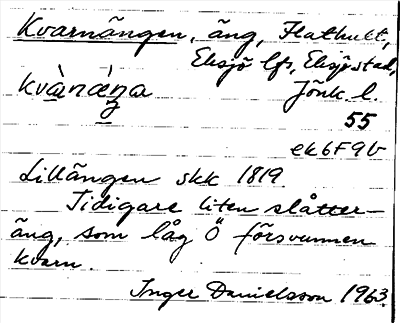 Kvarnängen, äng, Flathult,
Eksjö lfs, Eksjö stad,
kvànáŋa Jönk. l.
55
ek6F9b
Lillängen skk 1819.
Tidigare liten slåtter-
äng, som låg Ö försvunnen
kvarn.
Inger Danielsson 1963.